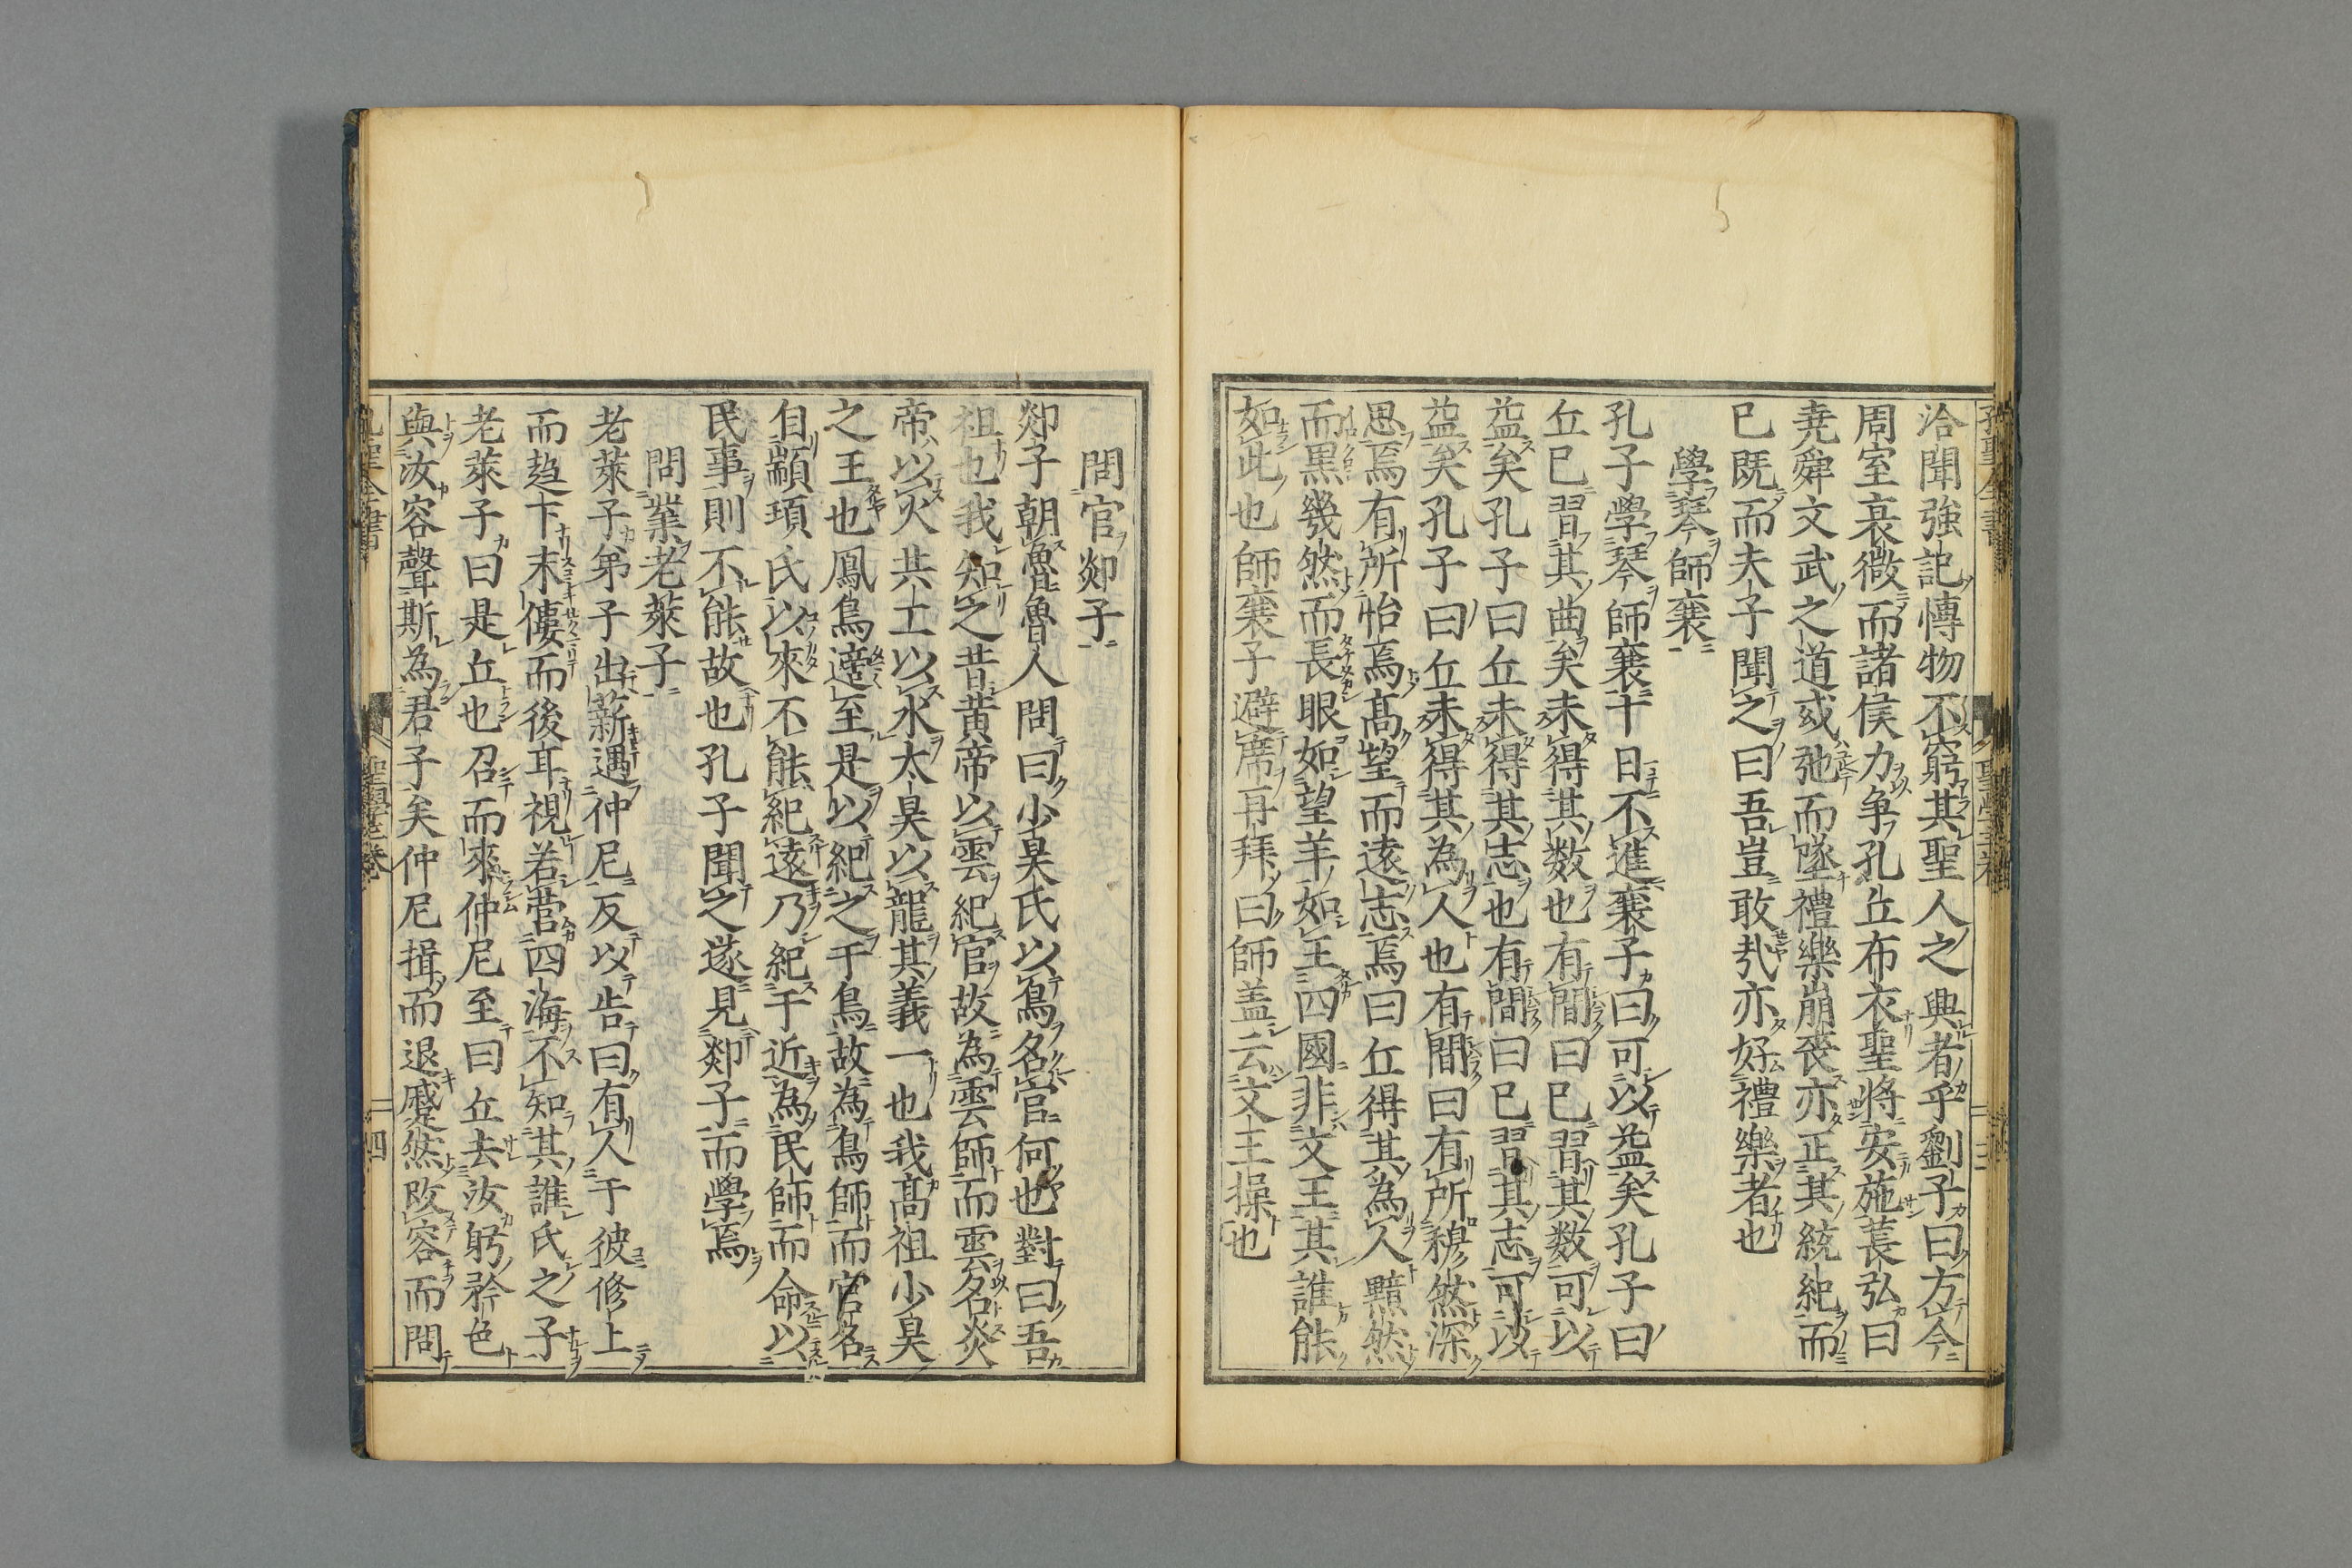 洽聞強記博物不窮其聖人之興者乎劉子曰方今
周室衰微而諸侯力争孔丘布衣聖將安施萇弘曰
堯舜文武之道或弛而墜禮樂崩喪亦正其統紀而
已既而夫子聞之曰吾豈敢㢤亦好禮樂者也
學琴師襄
孔子學琴師襄十日不進襄子曰可以益矣孔子曰
丘已習其曲矣未得其数也有間曰已習其数可以
益矣孔子曰丘未得其志也有間曰已習其志可以
益矣孔子曰丘未得其為人也有間曰有所穆然深
思焉有所怡焉髙望而遠志焉曰丘得其為人黯然
而黒幾然而長眼如望羊如王四國非文王其誰能
如此也師襄子避席再拜曰師盖云文王操也
問官郯子
郯子朝魯魯人問曰少昊氏以鳥名官何也對曰吾
祖也我知之昔黄帝以雲紀官故為雲師而雲名炎
帝以火共工以水太昊以龍其義一也我髙祖少昊
之王也鳳鳥適至是以紀之于鳥故為鳥師而官名
自顓頊氏以來不能紀遠乃紀于近為民師而命以
民事則不能故也孔子聞之遂見郯子而學焉
問業老萊子
老萊子弟子出薪遇仲尼反以告曰有人于彼修上
而趍下末僂而後耳視若营四海不知其誰氏之子
老萊子曰是丘也召而來仲尼至曰丘去汝躬矜色
與汝容聲斯為君子矣仲尼揖而退蹙然改容而問
四